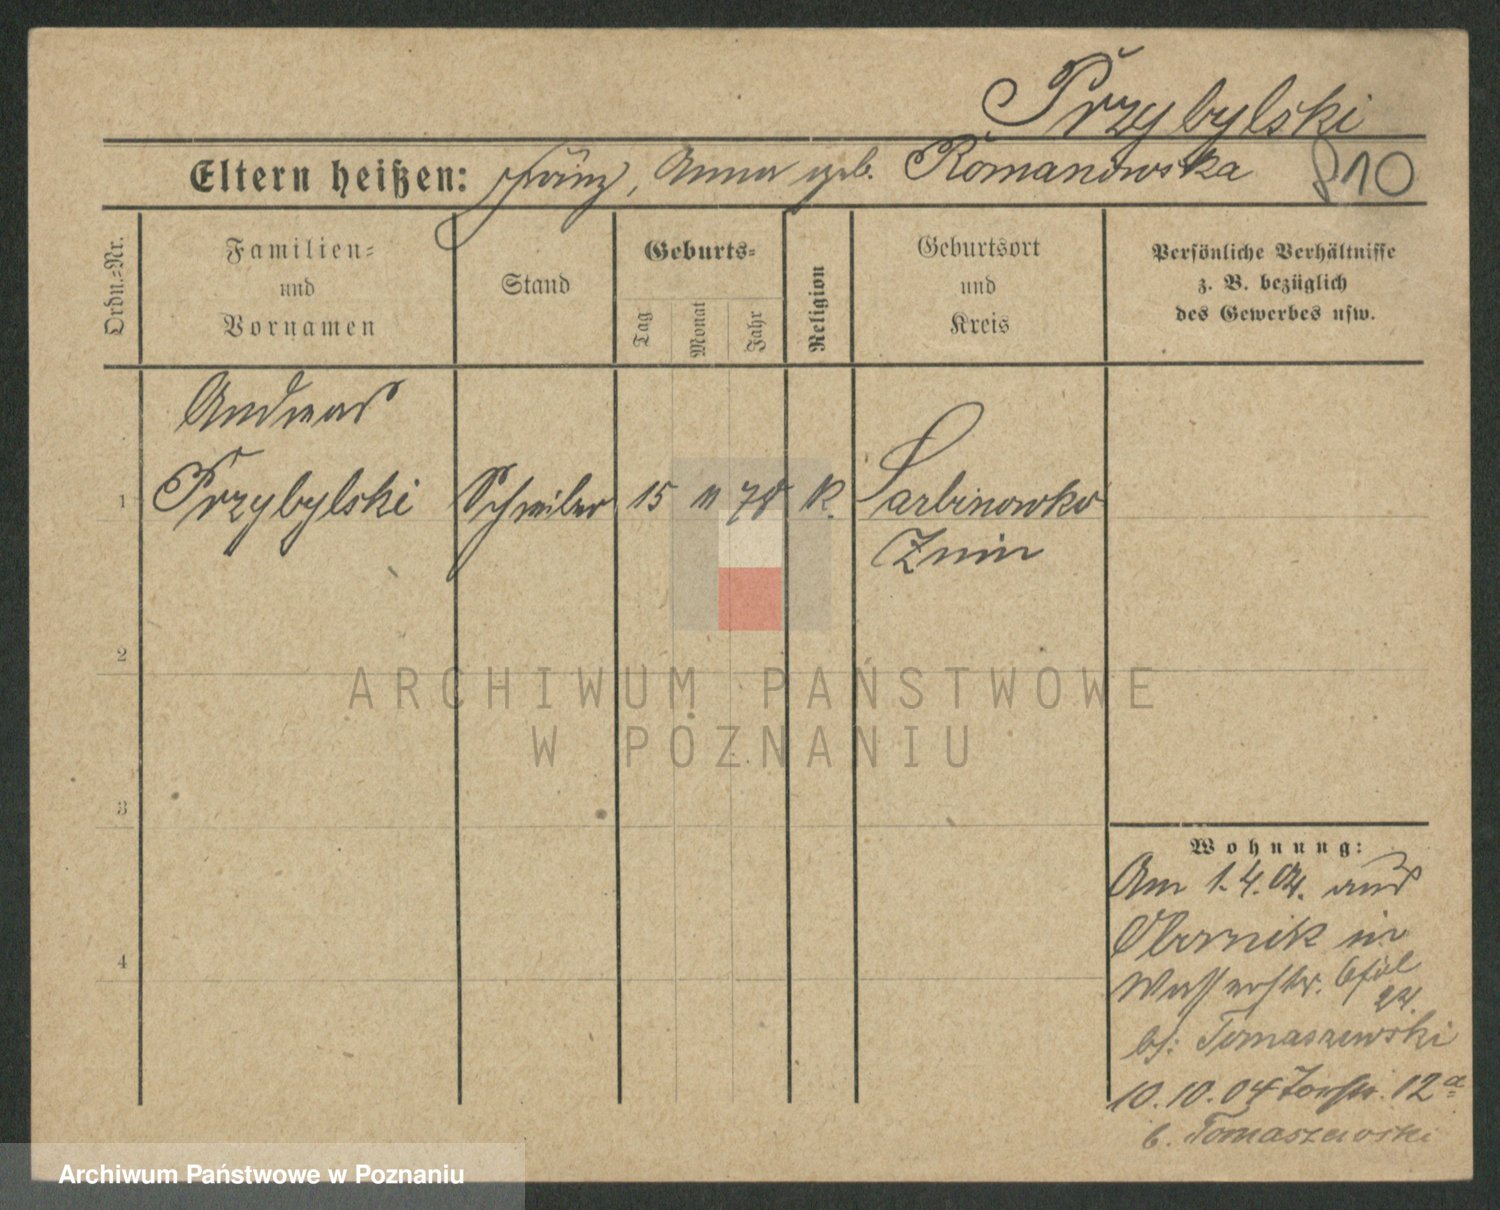 Przybylski
Eltern heißen: Franz, Anna geb. Romanowska
810
Ordn.=Nr.
Familien=
und
Vornamen
Stand
Geburts=
Tag
Monat
Jahr
Religion
Geburtsort
und
Kreis
Persönliche Verhältnisse
z. B. bezüglich
des Gewerbes usw.
Andreas
1 Przybylski Schreiber 15 11 78 K. Sarbinowko
Znin
2
3
4
Wohnung:
Am 1.4.04. aus
Obornik in
Wasserstr.
b/: Tomaszewski
10.10.04 12a
b. Tomaszewski
ARCHIWUM PAŃSTWOWE
W POZNANIU
Archiwum Państwowe w Poznaniu